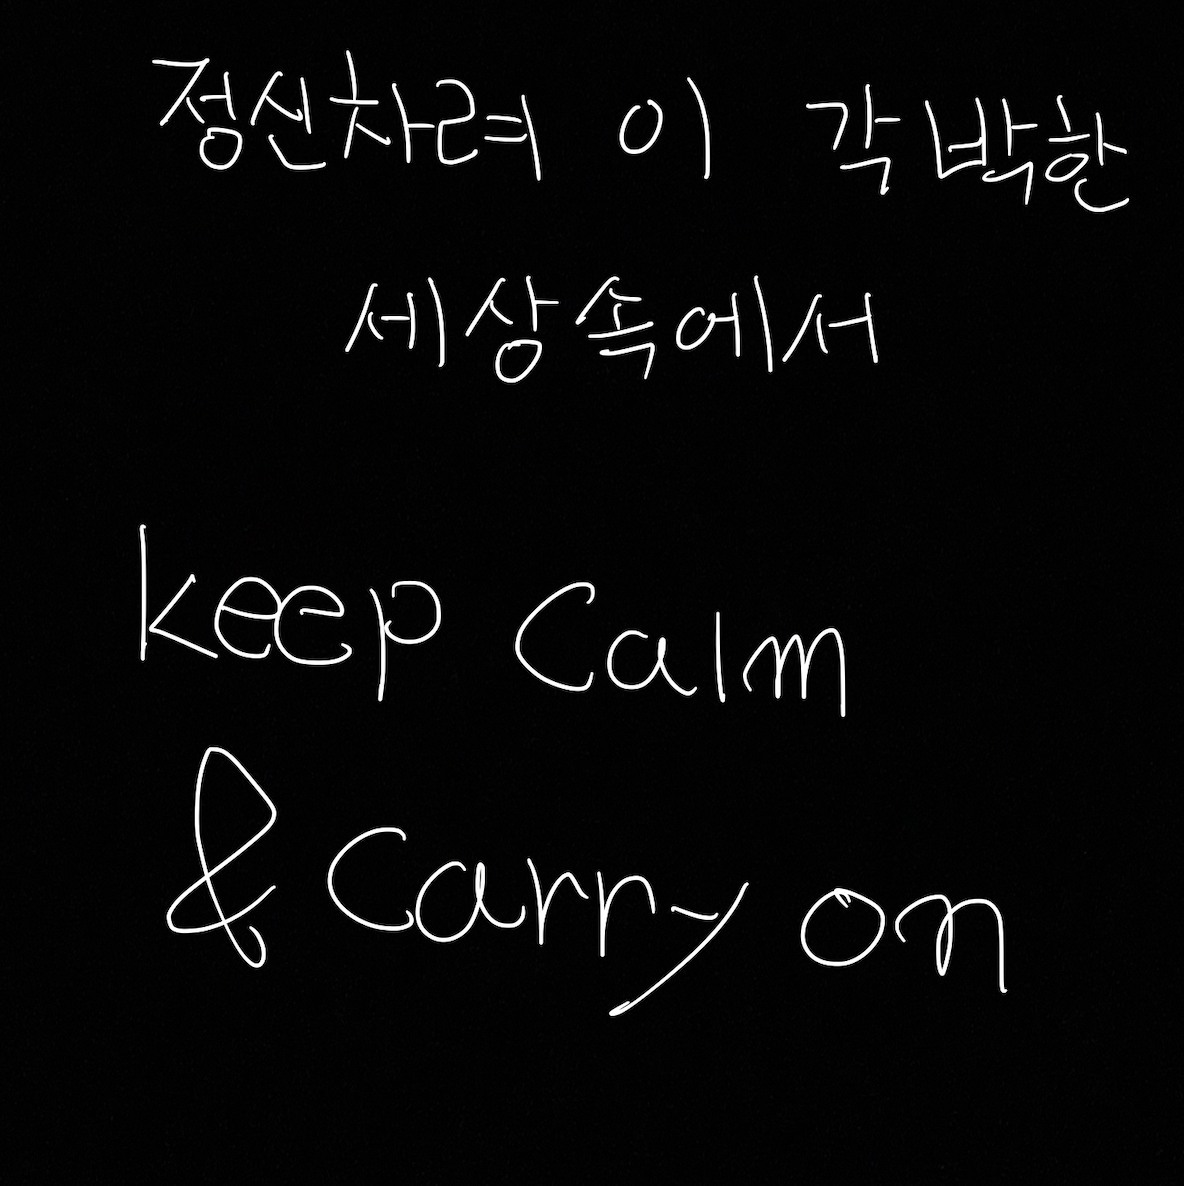 정신차려 이 각박한
세상속에서
keep calm
& carry on